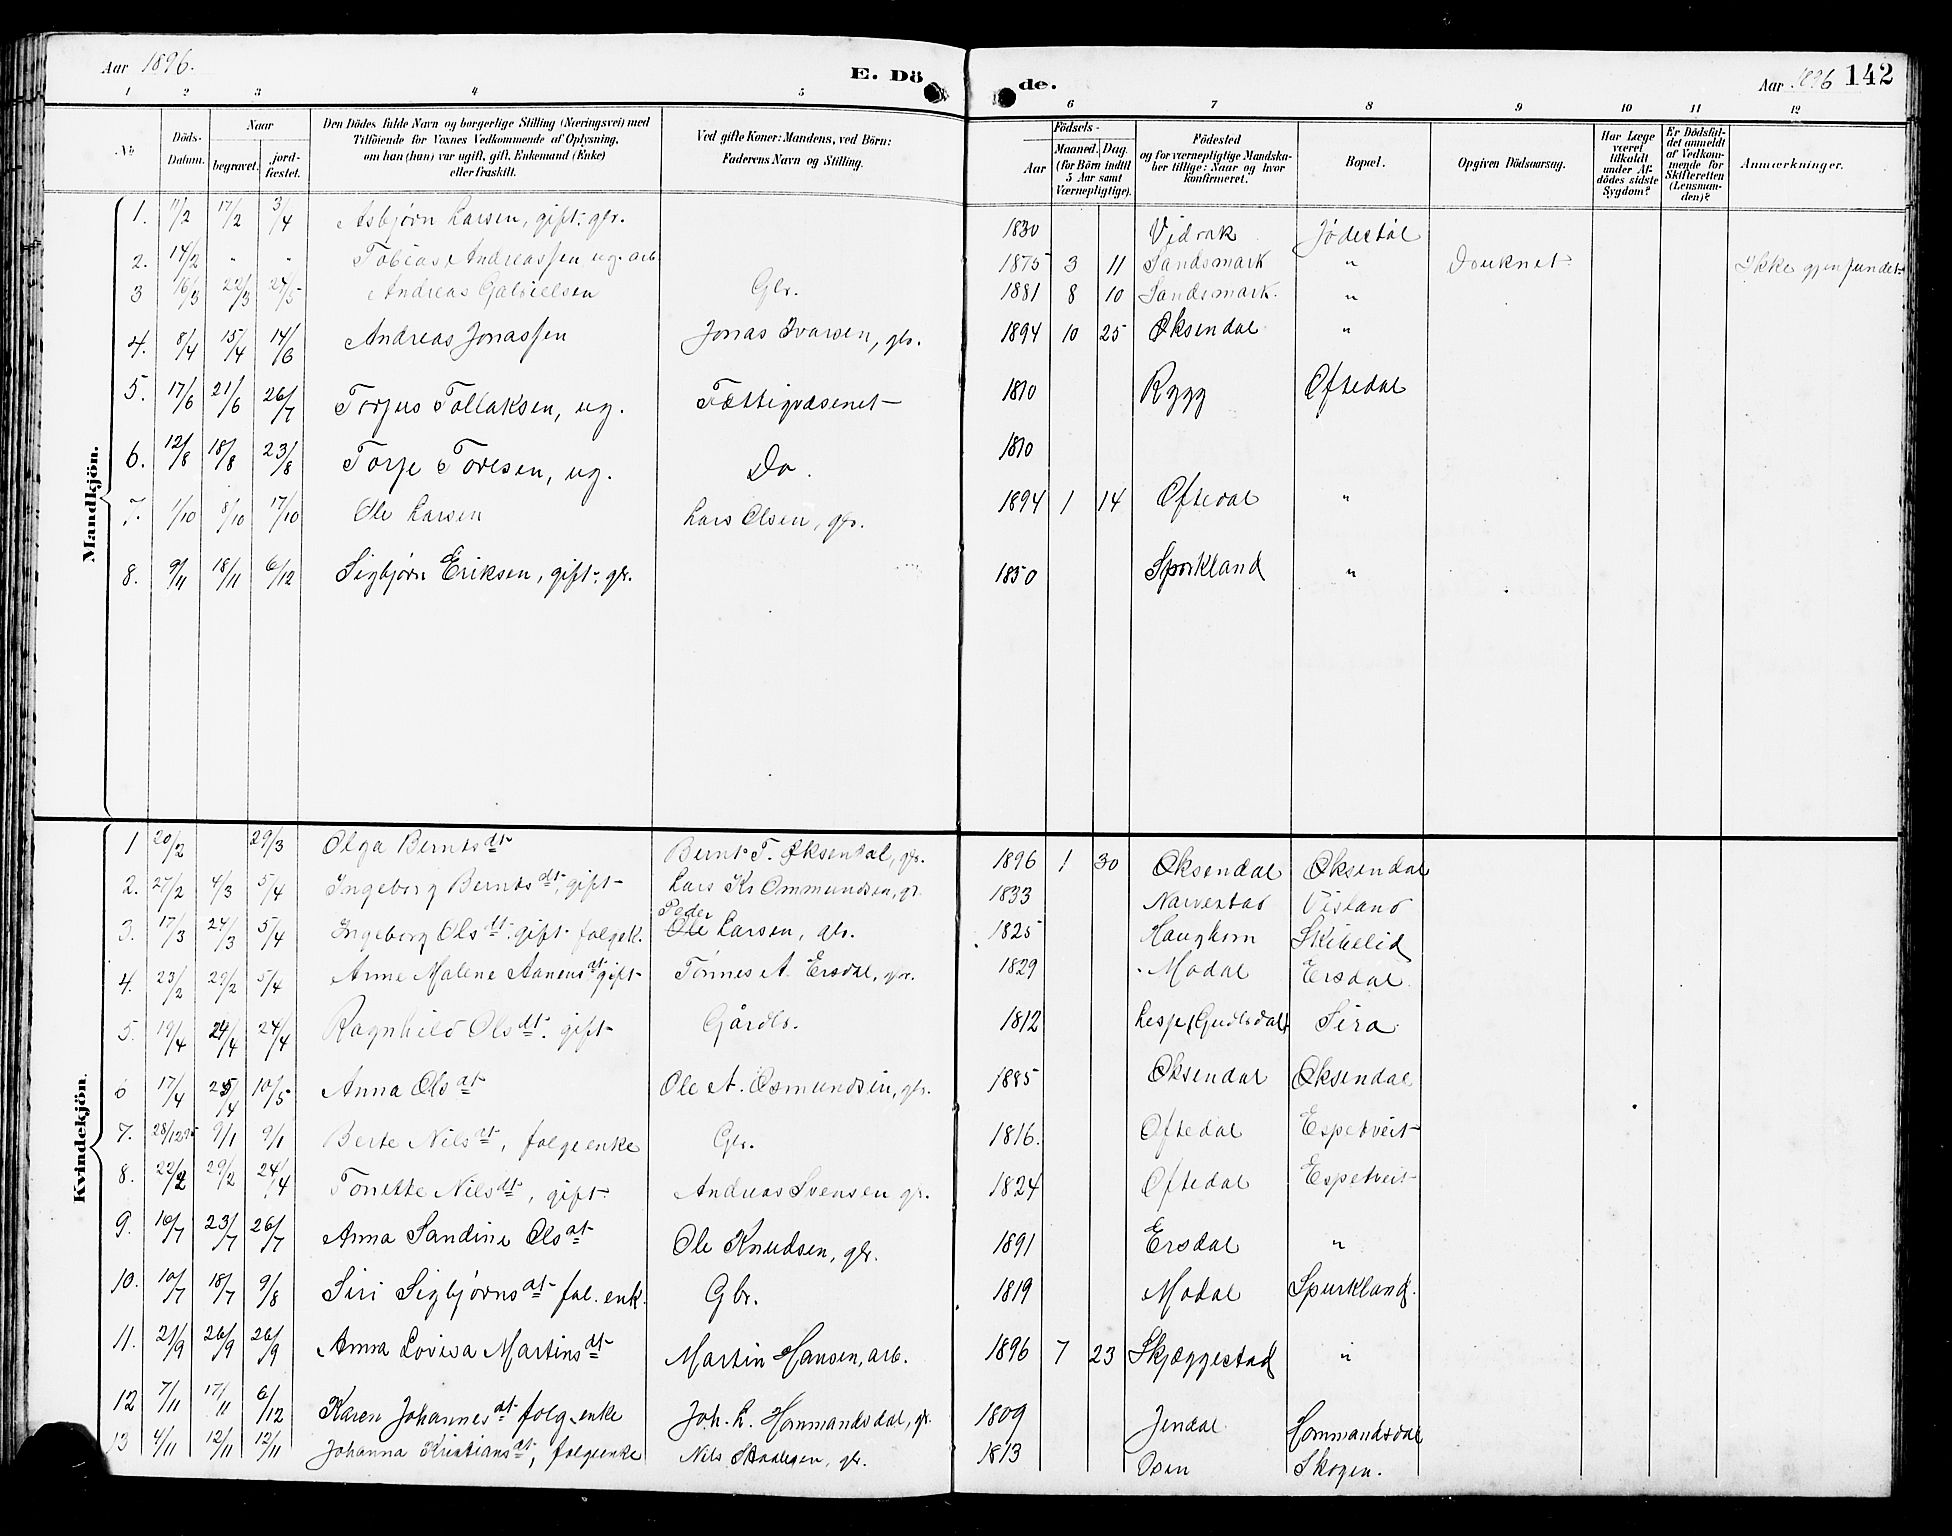 Aar 1896. E. Dö de. Aar 1896 142
1 2 3 4 5 6 7 8 9 10 11 12
No Döds-Datum. Naar begravet. jordfæstet. Den Dödes fulde Navn og borgerlige Stilling (Næringsvei) med Tilföiende for Voxnes Vedkommende af Oplysning, om han (hun) var ugift, gift, Enkemand (Enke) eller fraskilt. Ved gifte Koner: Mandens, ved Börn: Faderens Navn og Stilling. Födsels- Aar Maaned. Dag. (for Börn indtil 5 Aar samt Værnepligtige). Födested og for værnepligtige Mandskaber tillige: Naar og hvor konfirmeret. Bopæl. Opgiven Dödsaarsag. Har Læge været tilkaldt under Afdödes sidste Sygdom? Er Dödsfaldet anmeldt af Vedkommende for Skifteretten (Lensmanden)? Anmærkninger.
Mandkjön.
1. 11/2 17/2 3/4 Asbjørn Larsen, gift. gbr. 1830 Vidrak Jødestøl
2. 14/2 " " Tobias Andreassen ug. arb. 1875 3 11 Sandsmark " Druknet Ikke gjenfundet
3 16/3 22/3 24/5 Andreas Gabrielsen Gbr. 1881 8 10 Sandsmark. "
4. 8/4 15/4 14/6 Andreas Jonassen Jonas Ivarsen, gbr. 1894 10 25 Øksendal "
5. 17/6 21/6 26/7 Torjus Tollaksen, ug. Fattigvæsenet 1810 Rygg Oftedal
6. 12/8 18/8 23/8 Torje Toresen, ug. Do. 1810
7. 1/10 8/10 17/10 Ole Larsen Lars Olsen, gbr. 1894 1 14 Oftedal "
8. 9/11 18/11 6/12 Sigbjørn Eriksen, gift. gbr. 1850 Spurkland "
Kvindekjön.
1 20/2 29/3 Olga Berntsdt Bernt T. Øksendal, gbr. 1896 1 30 Øksendal Øksendal
2. 27/2 4/3 5/4 Ingeborg Berntsdt, gift Lars Kr Ommundsen, gr. 1833 Narvestad Vistand
3. 17/3 24/3 5/4 Ingeborg Olsdt. gift folgek. Peder Ole Larsen, gbr. 1825 Haughom Skibelid
4. 23/2 29/2 5/4 Anne Malene Aanensdt gift Tønnes A. Ersdal, gbr. 1829 Modal Ersdal
5. 19/4 24/4 24/4 Ragnhild Olsdt. gift Gårdbr. 1812 Lesp (Gudlsdal) Sira
6 17/4 25/4 10/5 Anna Olsdt Ole A. Osmundsen, gbr. 1885 Øksendal Øksendal
7. 28/12 95 9/1 9/1 Berte Nilsdt, folgeenke Gbr. 1816. Oftedal Espetveit
8. 22/2 29/2 24/4 Tonette Nilsdt, gift. Andreas Svensen gbr. 1824 Oftedal Espetveit
9. 16/7 23/7 26/7 Anna Sandine Olsdt Ole Knudsen, gbr. 1891 Ersdal "
10. 10/7 18/7 9/8 Siri Sigbjørnsdt fol. enk. Gbr. 1819 Modal Spurkland.
11. 21/9 26/9 26/9 Anna Lovisa Martinsdt Martin Hansen, arb. 1896 7 23 Skjæggestad "
12 7/11 17/11 6/12 Karen Johannesdt folg. enke Joh. L. Hommandsdal, gr. 1809 Jendal Hommandsdal
13 4/11 12/11 12/11 Johanna Kristiansdt, folgeenke Nils Skadegen, gbr. 1813 Osen Skogen.